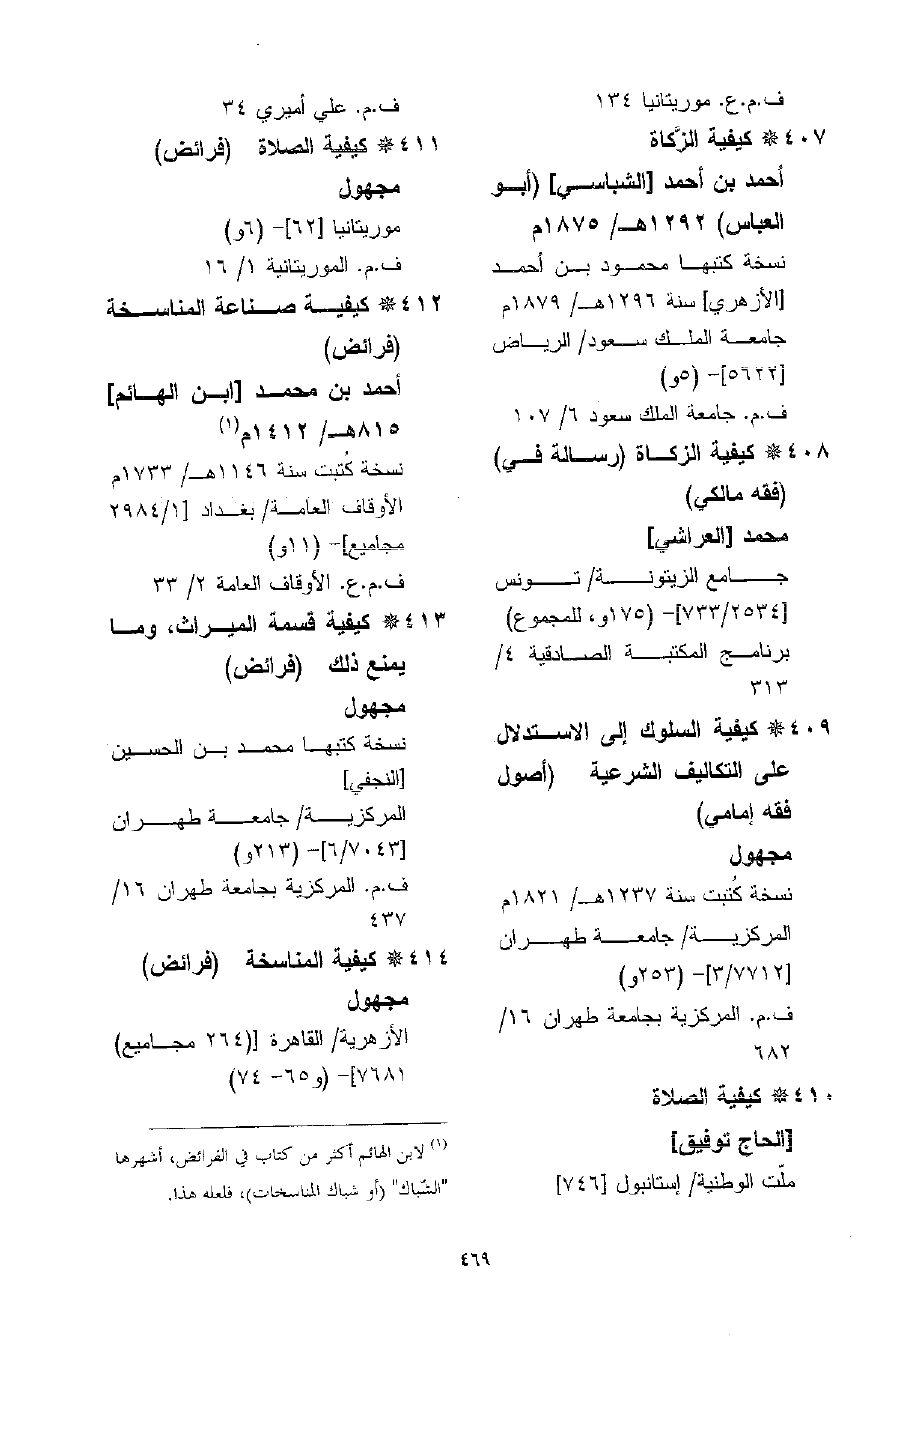 ف.م.ع. موريتانيا ١٣٤
٤٠٧* كيفية الزّكاة
أحمد بن أحمد [الشباسي] (أبو
العباس) ١٢٩٢هـ/ ١٨٧٥م
نسخة كتبها محمود بن أحمد
[الأزهري] سنة ١٢٩٦هـ/ ١٨٧٩م
جامعة الملك سعود/ الرياض
[٥٦٢٢]- (٥و)
ف.م. جامعة الملك سعود ٦/ ١٠٧
٤٠٨* كيفية الزكاة (رسالة في)
(فقه مالكي)
محمد [العراشي]
جامع الزيتونة/ تونس
[٧٣٣/٢٥٣٤]- (١٧٥و، للمجموع)
برنامج المكتبة الصادقية ٤/
٣١٣
٤٠٩* كيفية السلوك إلى الاستدلال
على التكاليف الشرعية (أصول
فقه إمامي)
مجهول
نسخة كُتبت سنة ١٢٣٧هـ/ ١٨٢١م
المركزية/ جامعة طهران
[٣/٧٧١٢]- (٢٥٣و)
ف.م. المركزية بجامعة طهران ١٦/
٦٨٢
٤١٠* كيفية الصلاة
[الحاج توفيق]
ملّت الوطنية/ إستانبول [٧٤٦]
ف.م. علي أميري ٣٤
٤١١* كيفية الصلاة (فرائض)
مجهول
موريتانيا [٦٢]- (٦و)
ف.م. الموريتانية ١/ ١٦
٤١٢* كيفية صناعة المناسخة
(فرائض)
أحمد بن محمد [ابن الهائم]
٨١٥هـ/ ١٤١٢م(١)
نسخة كُتبت سنة ١١٤٦هـ/ ١٧٣٣م
الأوقاف العامة/ بغداد [٢٩٨٤/١
مجاميع]- (١١و)
ف.م.ع. الأوقاف العامة ٢/ ٣٣
٤١٣* كيفية قسمة الميراث، وما
يمنع ذلك (فرائض)
مجهول
نسخة كتبها محمد بن الحسين
[النجفي]
المركزية/ جامعة طهران
[٦/٧٠٤٣]- (٢١٣و)
ف.م. المركزية بجامعة طهران ١٦/
٤٣٧
٤١٤* كيفية المناسخة (فرائض)
مجهول
الأزهرية/ القاهرة [(٢٦٤ مجاميع)
٧٦٨١]- (و٦٥- ٧٤)
(١) لابن الهائم أكثر من كتاب في الفرائض، أشهرها
"الشّباك" (أو شباك المناسخات)، فلعله هذا.
٤٦٩